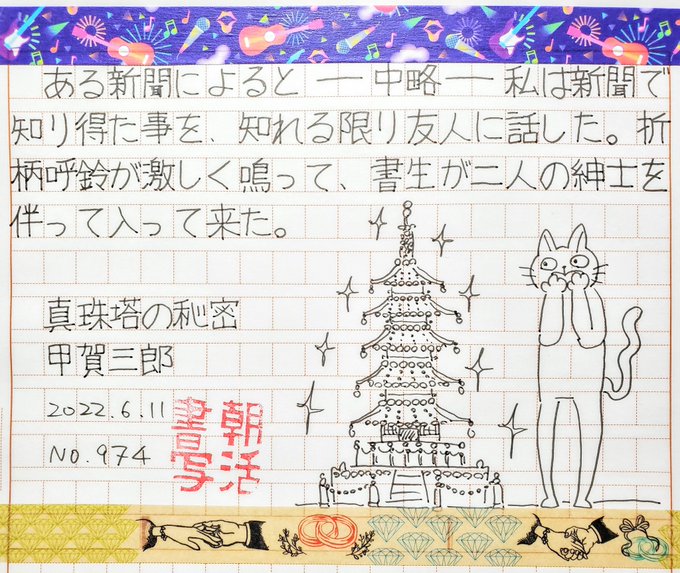 ある新聞によると ――中略―― 私は新聞で
知り得た事を、知れる限り友人に話した。折
柄呼鈴が激しく鳴って、書生が二人の紳士を
伴って入って来た。
真珠塔の秘密
甲賀三郎
2022.6.11
No.974
朝活
書写